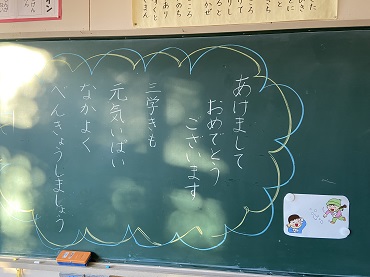 あけまして
おめでとう
ございます
三学きも
元気いっぱい
なかよく
べんきょうしましょう